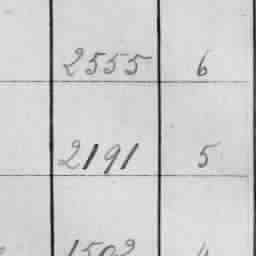 2555 6
2191 5
1502 4